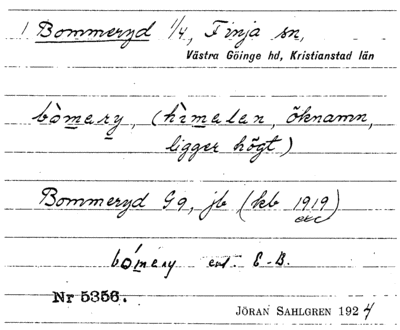 1 Bommeryd 1/4, Finja sn,
Västra Göinge hd, Kristianstad län
bòmery, (hìmelen, öknamn,
ligger högt)
Bommeryd G9, jb (kb 1919)
etc
bómery enl. E-B.
Nr 5356.
JÖRAN SAHLGREN 1924